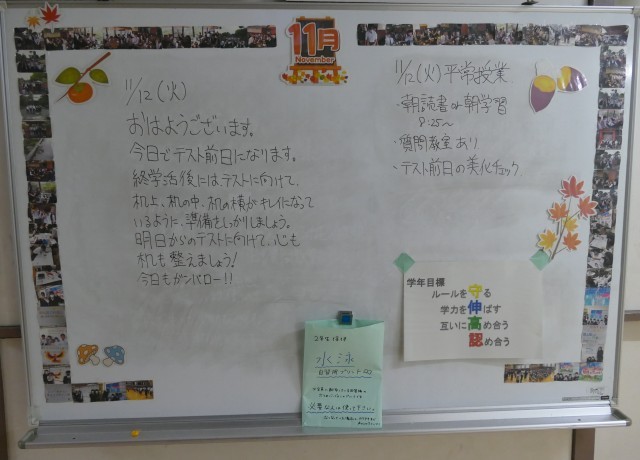 11月
November
11/12(火)
おはようございます。
今日でテスト前日になります。
終学活後には、テストに向けて、
机上、机の中、机の横がキレイになって
いるように、準備をしっかりしましょう。
明日からのテストに向けて、心も
机も整えましょう!
今日もガンバロー!!
11/12(火)平常授業
・朝読書or朝学習
8:25〜
・質問教室あり
・テスト前日の美化チェック
学年目標
ルールを守る
学力を伸ばす
互いに高め合う
認め合う
水泳